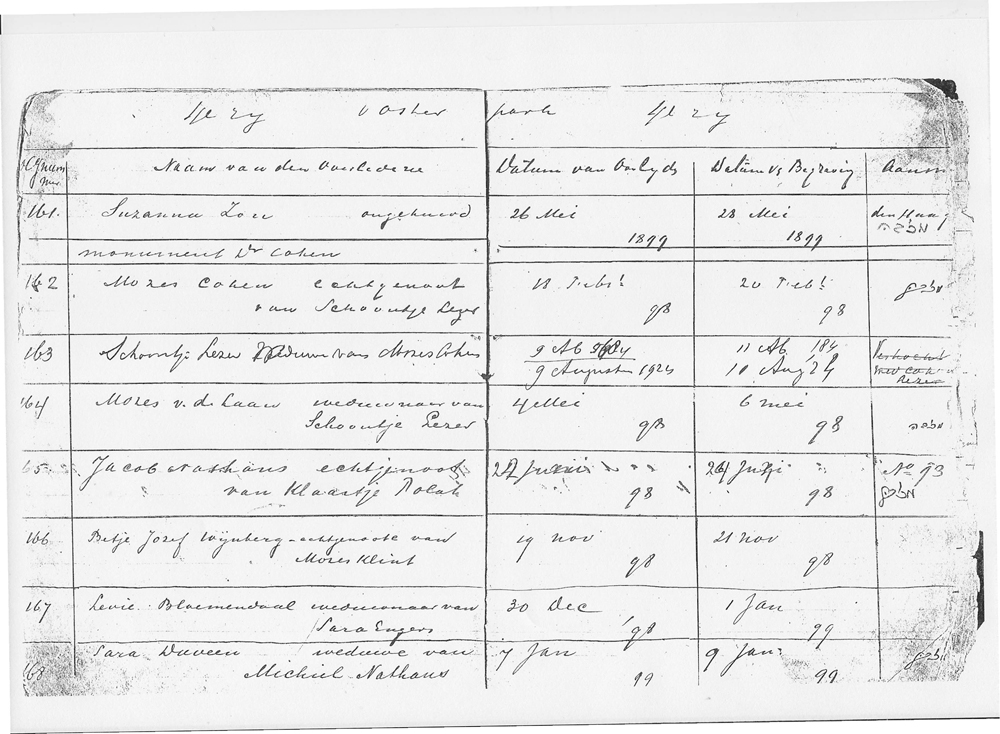 ooster park
Naam van den Overledene Datum van Overlyds Datum v Begraving Aanm
161. Suzanna ongehuwd 26 Mei 28 Mei den Haag
1899 1899
monument Dr Cohen
162 Mozes Cohen echtgenoot 18 Febr 20 Febr
van Schoontje Lezer 98 98
163 Schoontje Lezer Weduwe van Mozes Cohen 9 Ab 11 Ab 184
9 Augustus 1924 10 Aug 24
Lezer
164 Mozes v. de Laauw weduwnaar van 4 Mei 6 mei
Schoontje Lezer 98 98
65 Jacob Nathans echtgenoot 24 No 93
van Klaartje Polak 98 98
166 Betje Jozef Wynberg - echtgenoote van 19 nov 21 nov
Mozes Klint 98 98
167 Levie Bloemendaal weduwnaar van 30 Dec 1 Jan
Sara Engers 98 99
168 Sara Duveen weduwe van 7 Jan 9 Jan
Michiel Nathans 99 99